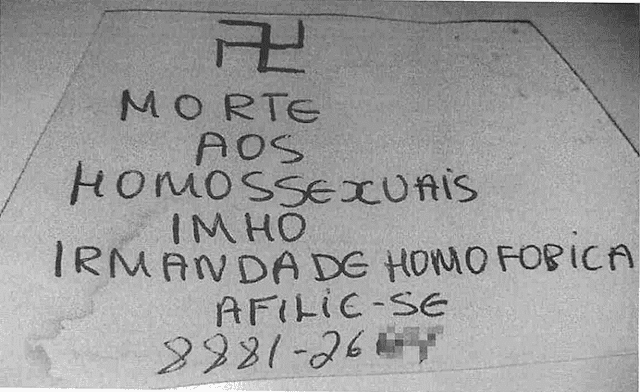 MORTE
AOS
HOMOSSEXUAIS
IMHO
IRMANDADE HOMOFOBICA
AFILIE-SE
8881-26